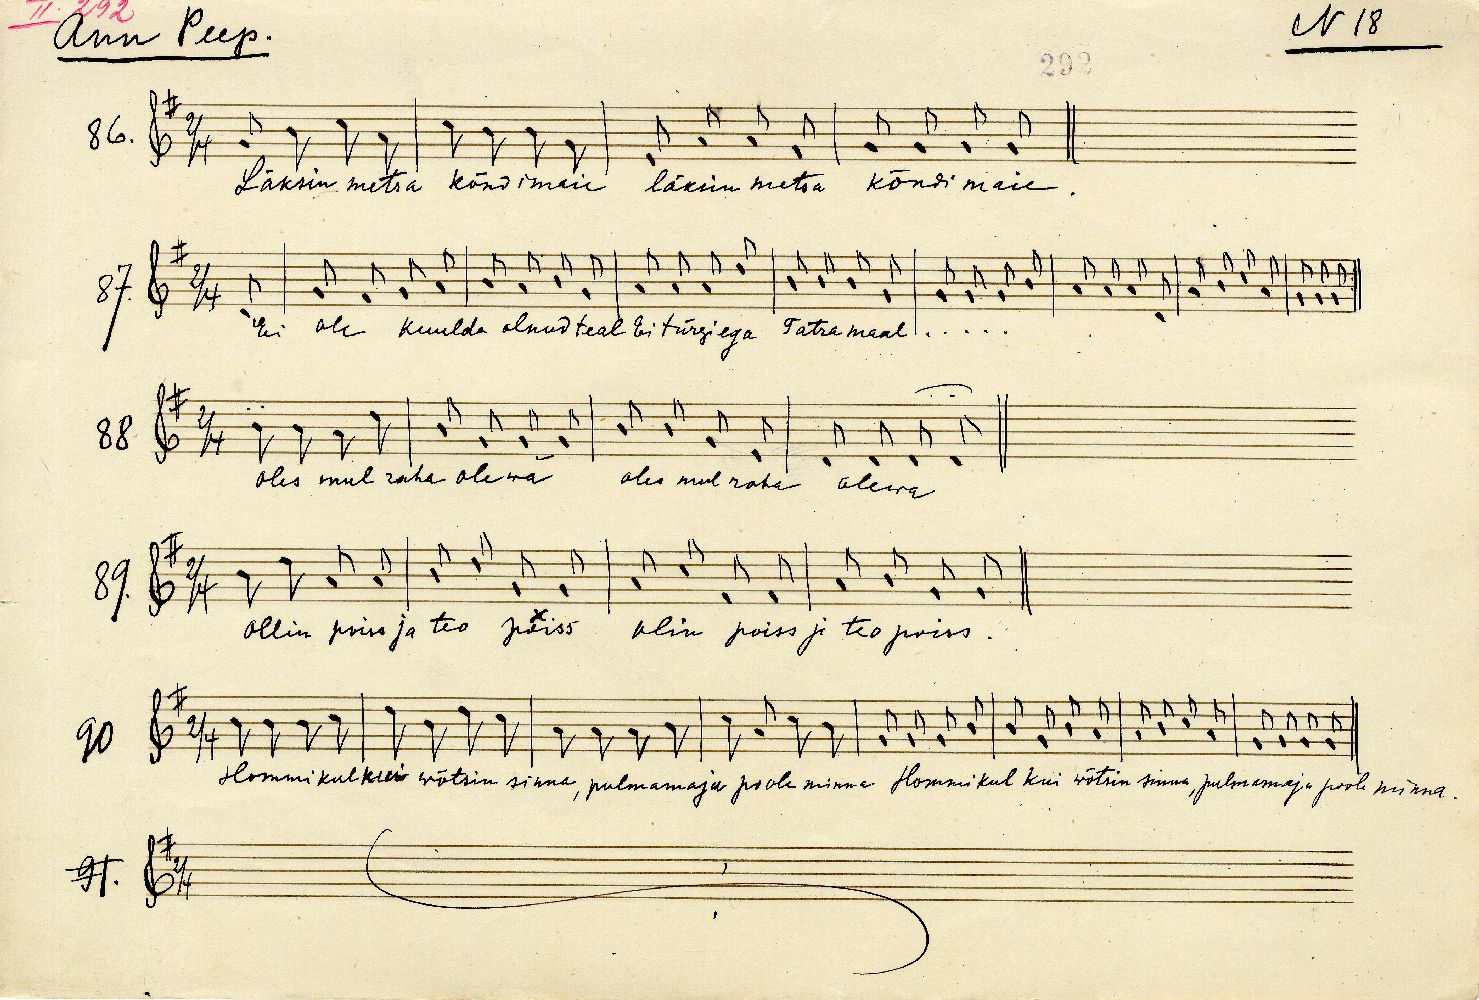 II. 292
Ann Peep.
N 18
292
86.
2/4
Läksin metsa kõndimaie läksin metsa kõndimaie.
87.
2/4
Ei ole kuulda olnud teal Ei türgiega Tatra maal . . . . .
88
2/4
oles mul raha olewa oles mul raha olewa
89.
2/4
ollin poiss ja teo poiss olin poiss ja teo poiss.
90
2/4
Hommikul kui wõtsin sinna, pulmamaja poole minna Hommikul kui wõtsin sinna, pulmamaja poole minna.
91.
2/4